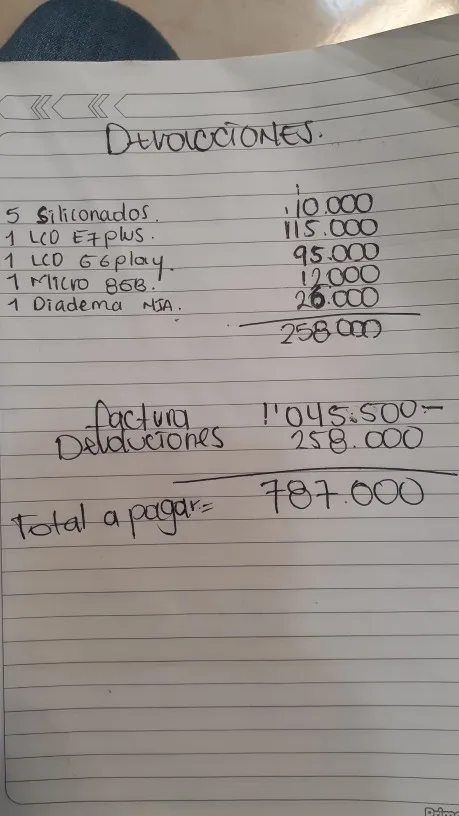 DEVOLUCIONES.
5 Siliconados. 10.000
1 LCD E7 plus. 115.000
1 LCD G6 play. 95.000
1 Micro 8GB. 12.000
1 Diadema NIA. 26.000
258.000
factura 1'045.500-
Devoluciones 258.000
787.000
Total a pagar=